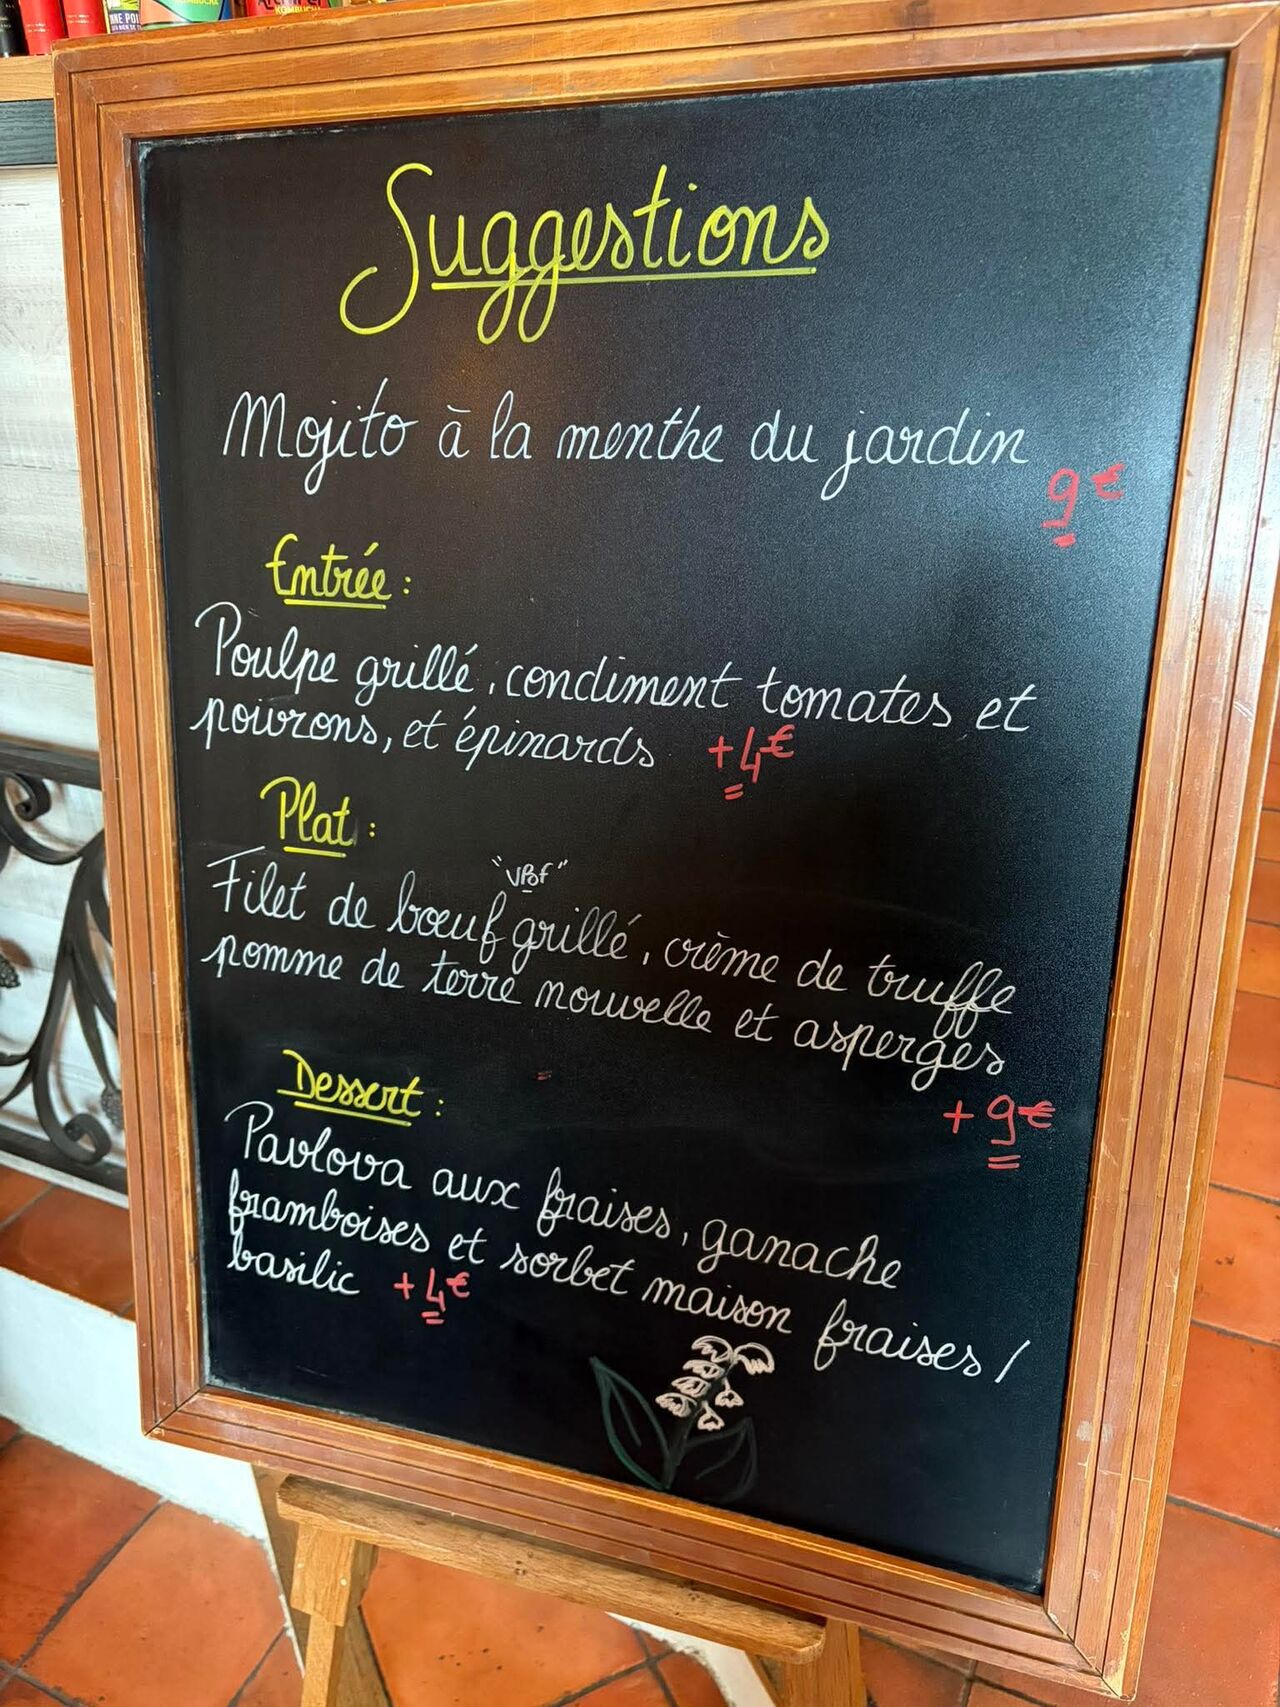 KOMBUCHA
Suggestions
Mojito à la menthe du jardin
9€
Entrée :
Poulpe grillé, condiment tomates et
poivrons, et épinards +4€
Plat :
"VBF"
Filet de bœuf grillé, crème de truffe
pomme de terre nouvelle et asperges
+9€
Dessert :
Pavlova aux fraises, ganache
framboises et sorbet maison fraises/
basilic +4€